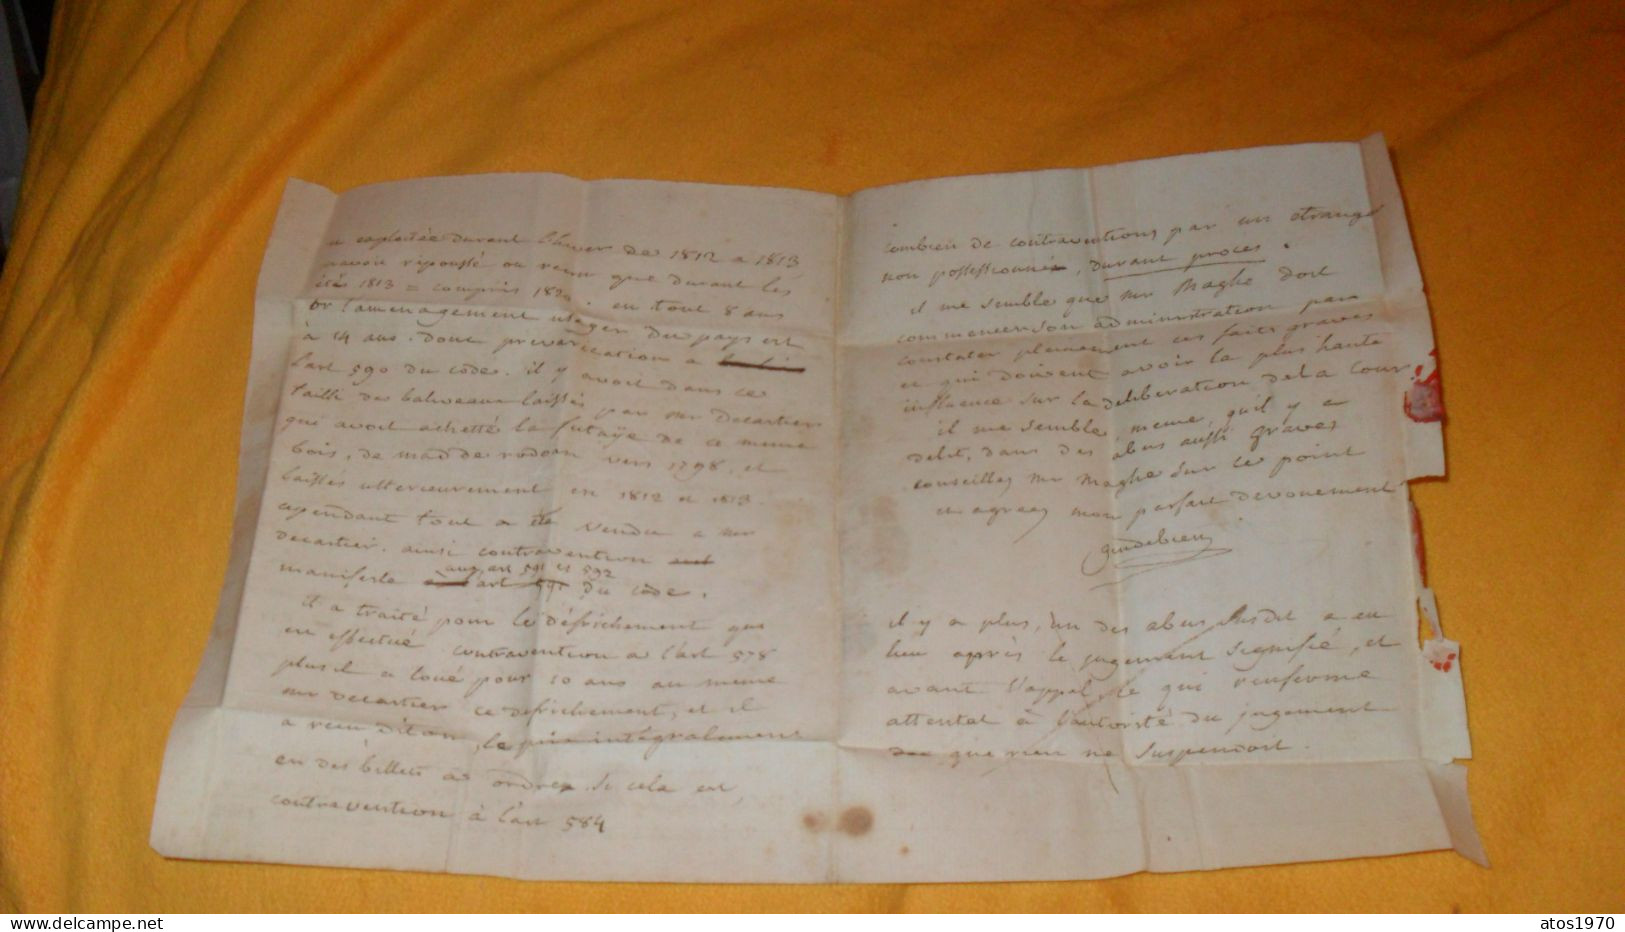 exploitée durant l'hiver de 1812 a 1813
avoir repoussé ou venu que durant les
étés 1813 = compris 1820. en tout 8 ans
or l'amenagement usager du pays est
à 14 ans. donc prevarication a
l'art 590 du code. il y avoit dans ce
taille des baliveaux laissés par mr Decartier
qui avoit achetté la futaÿe de ce meme
bois, de mad de rodoan vers 1798. et
laissés ulterieurement en 1812 et 1813.
cependant tout a été vendu a mr
decartier. ainsi contravention
aux art 591 et 592
manifeste l'art 591 du code.
il a traité pour le défrichement qui
en effectué contravention a l'art 578
plus il a loué pour 10 ans au meme
mr decartier ce defrichement, et il
a recu dit on, le prix integralement
en des billets a ordre. si cela est,
contravention à l'art 584
combien de contraventions par un etranger
non possessionné, durant proces.
il me semble que mr Maghe doit
commencer son administration par
constater pleinement ces faits graves
ce qui doivent avoir la plus haute
influence sur la deliberation de la Cour
il me semble, meme, quil y a
delit, dans des abus aussi graves
conseillez mr Maghe sur ce point
et agreez mon parfait devouement
gendebien
il y a plus, un des abus susdit a eu
lieu après le jugement signifié, et
avant l'appel, ce qui renferme
attentat à l'autorité du jugement
que rien ne suspendoit.
atos1970
www.delcampe.net